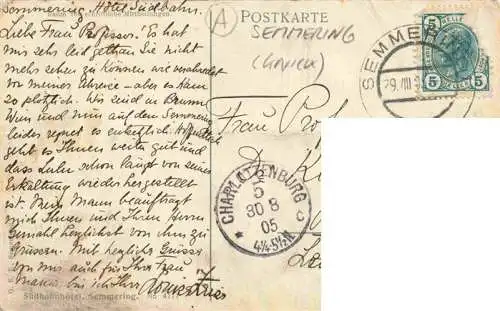 Semmering. Hôtel Südbahn.
Liebe Frau Professor. Es hat
mir sehr leid gethan Sie nicht
mehr sehen zu können wie verabredet
vor meiner Abreise - aber es kam
so plötzlich. Wir sind in
Wien und nun auf dem Semmering
leider regnet es entsetzlich. Hoffentlich
geht es Ihnen weiter gut und
dass Lulu schon längst von seiner
Erkältung wieder hergestellt
ist. Mein Mann beauftragt
mich Ihnen und Ihren Herrn
Gemahl herzlichst von ihm zu
Grüssen. Mit herzliche Grüsse
von mir auch für Ihre Frau
Mama bin ich Ihre
Südbahnhôtel, Semmering. No
POSTKARTE
A
SEMMERING
Frau Prof
SEMMER
29. VIII
5 HELLER 5
5 5
CHARLOTTENBURG
5
30 8
05
4¼-5½N.
* c